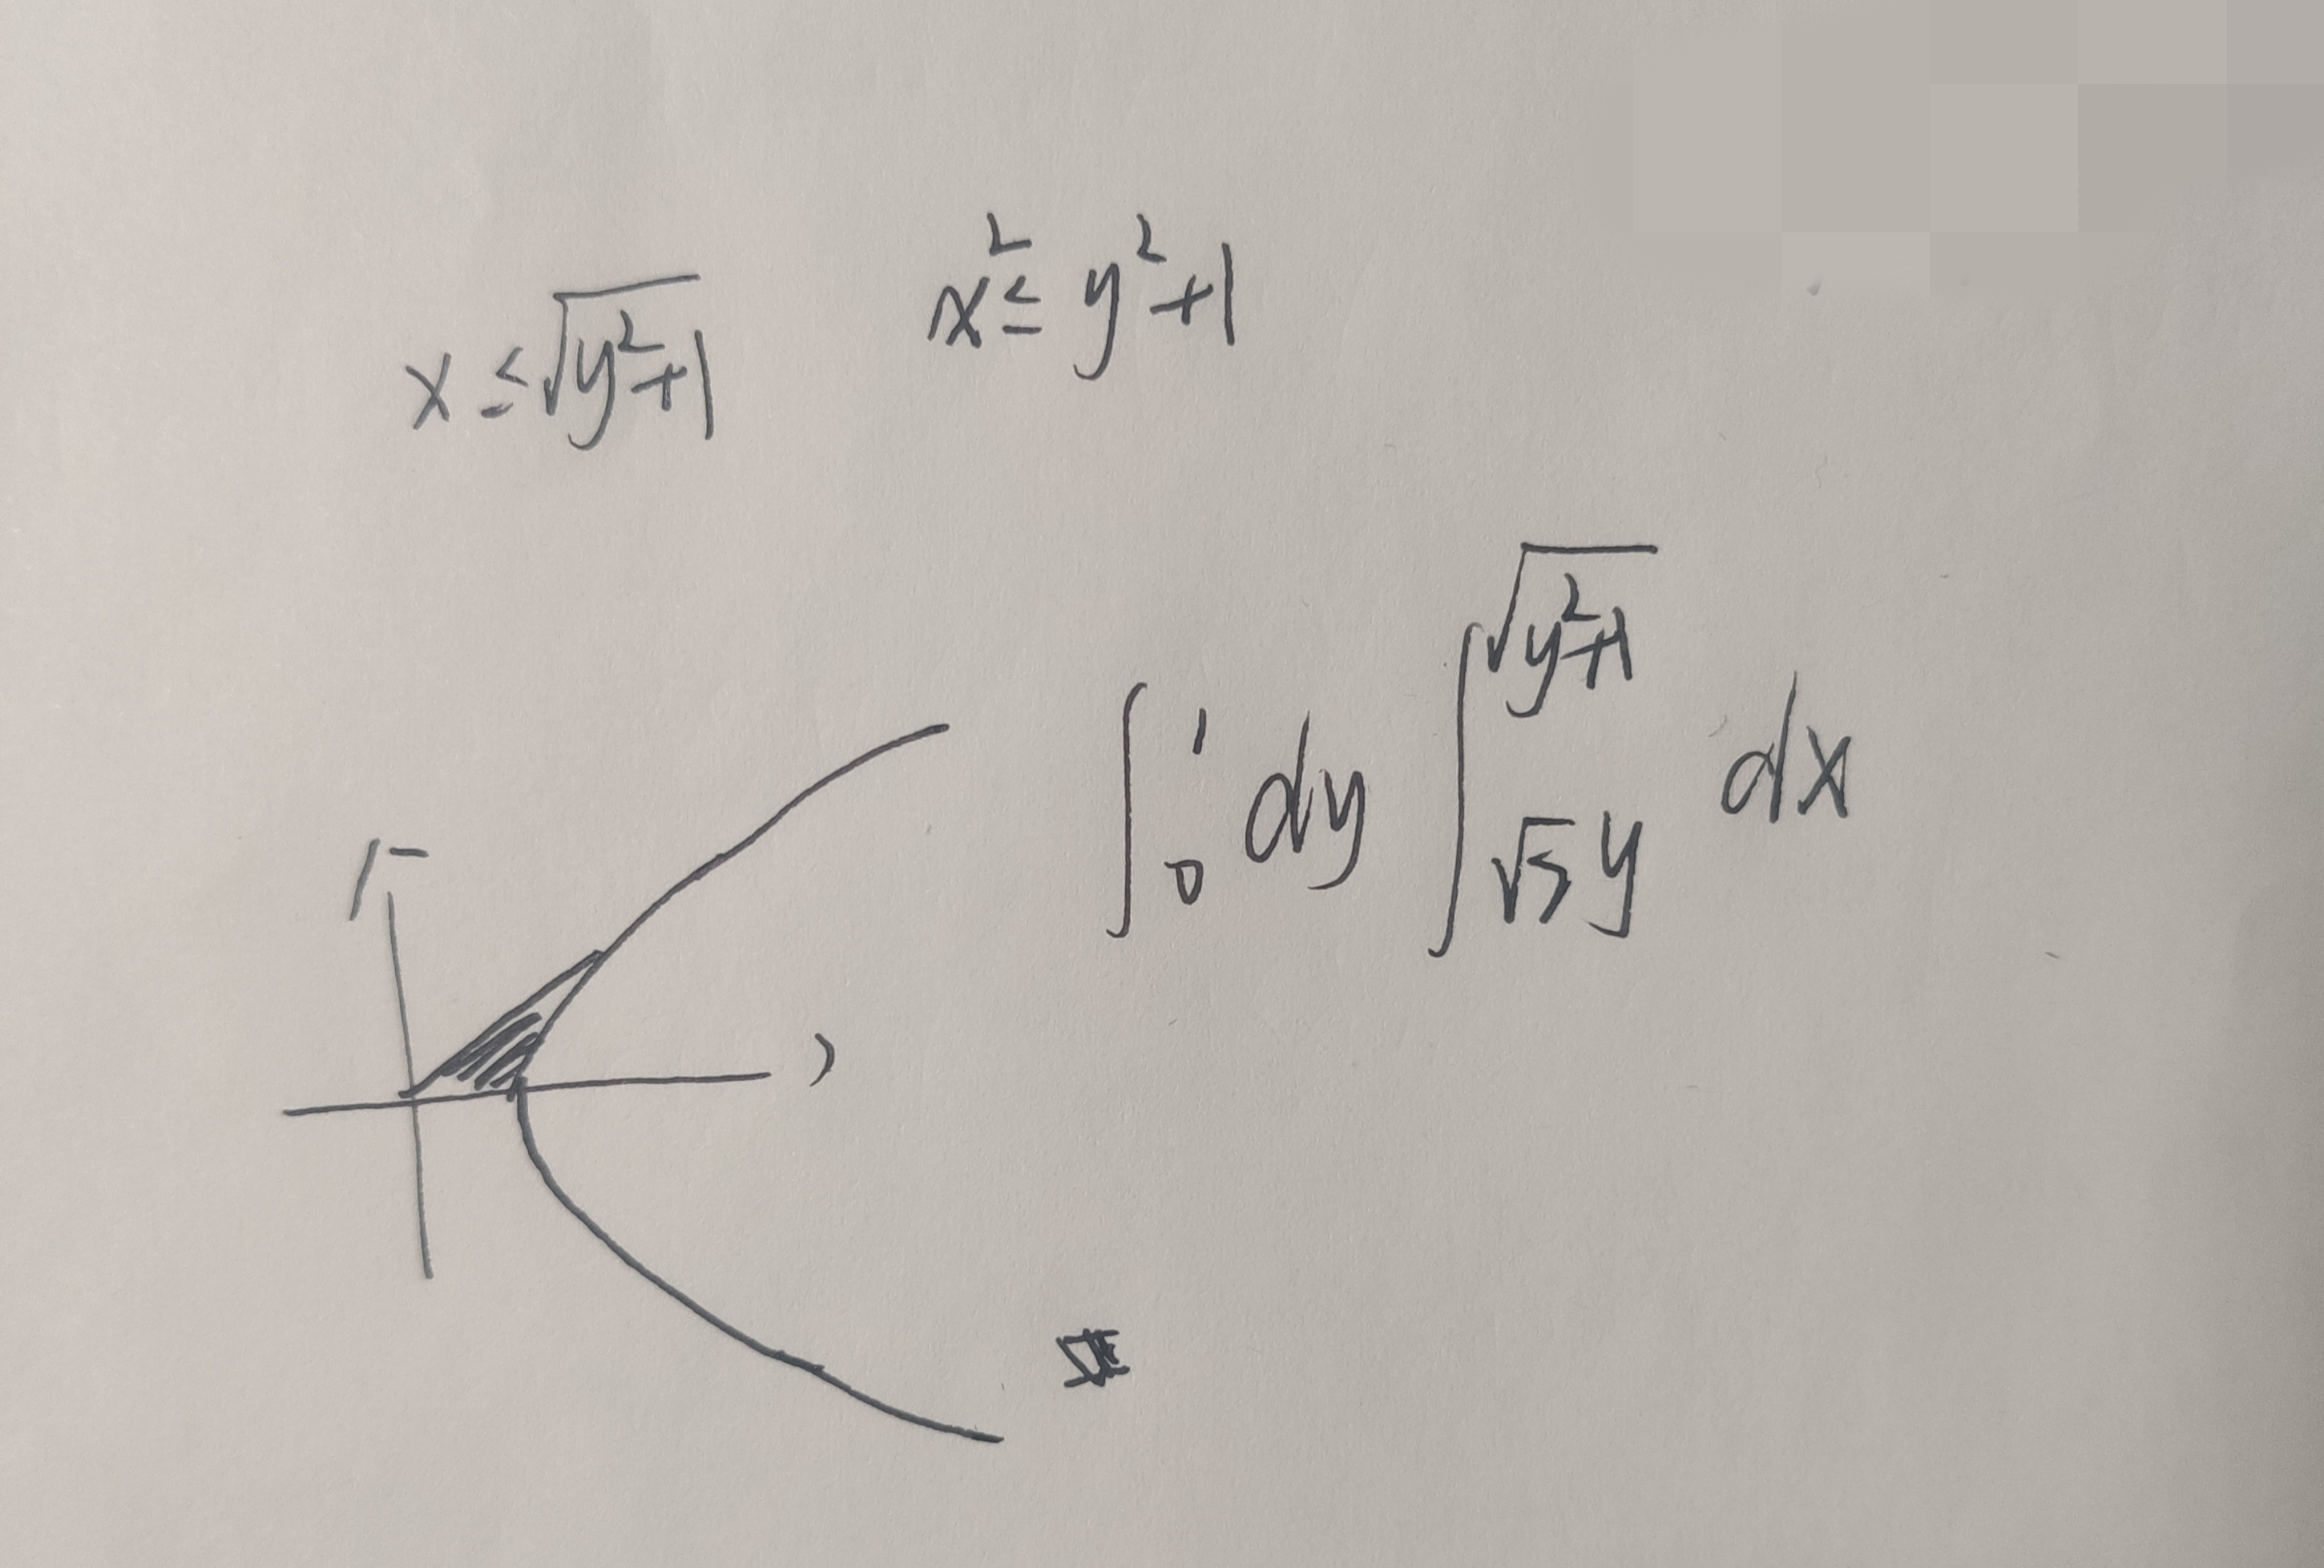 x ≤ √(y²+1)   x² ≤ y²+1
∫₀¹ dy ∫_{√ y}^{√(y²+1)} dx